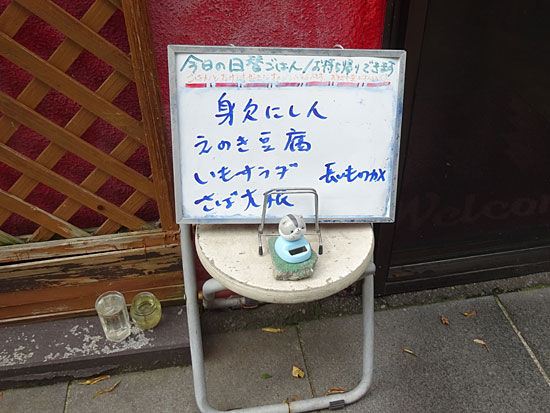 今日の日替ごはん/お持ち帰りできます
身欠にしん
えのき豆腐
いもサラダ 長いものカメ
さば大根
Welcome